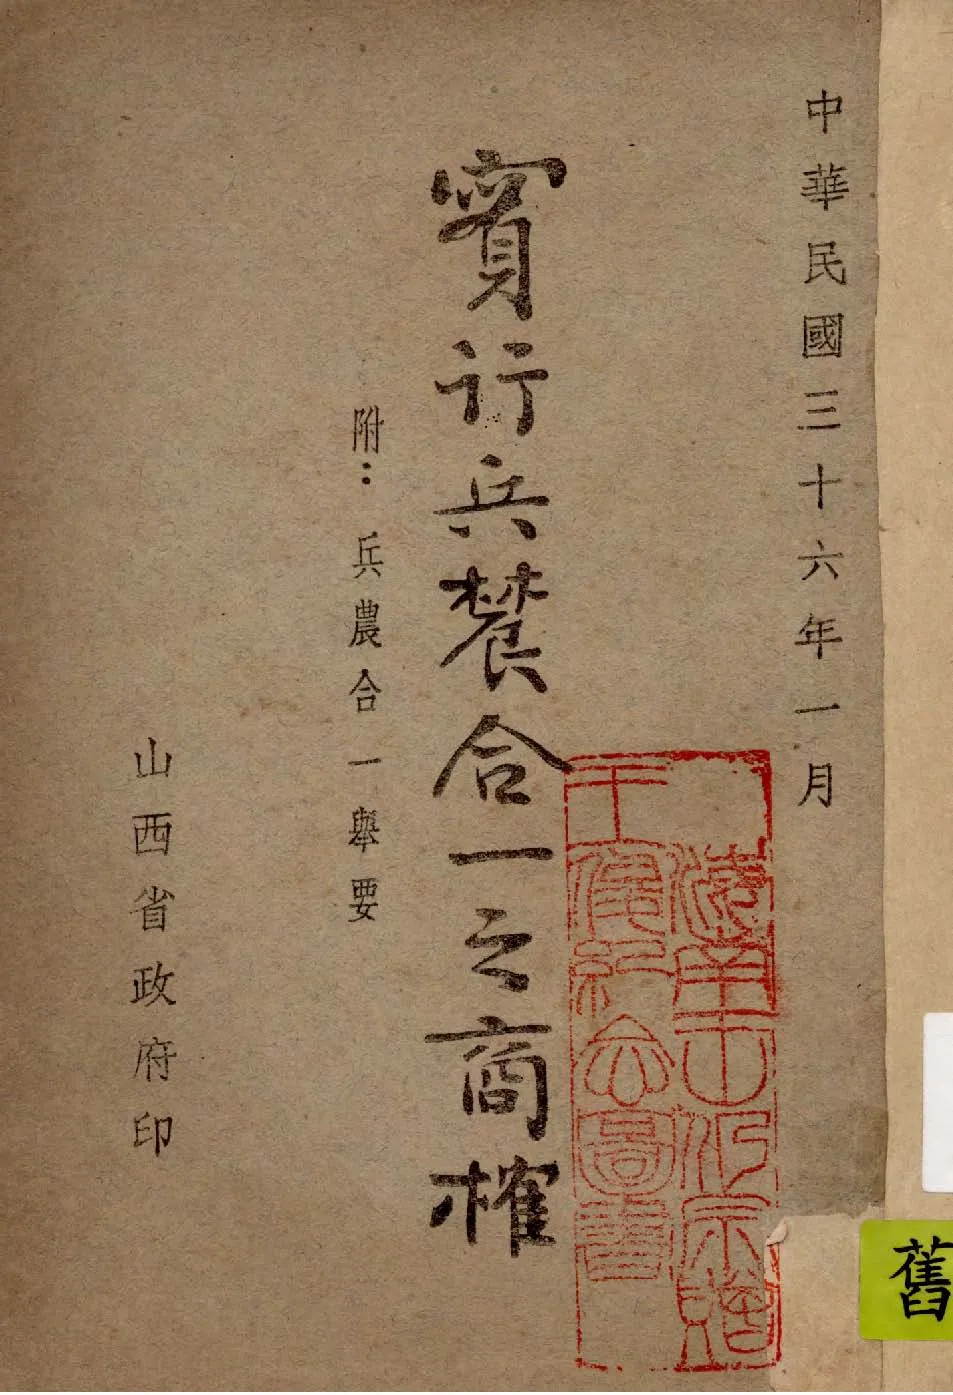 中華民國三十六年一月
實行兵農合一之商榷
附：兵農合一舉要
山西省政府印
紀念圖書
舊